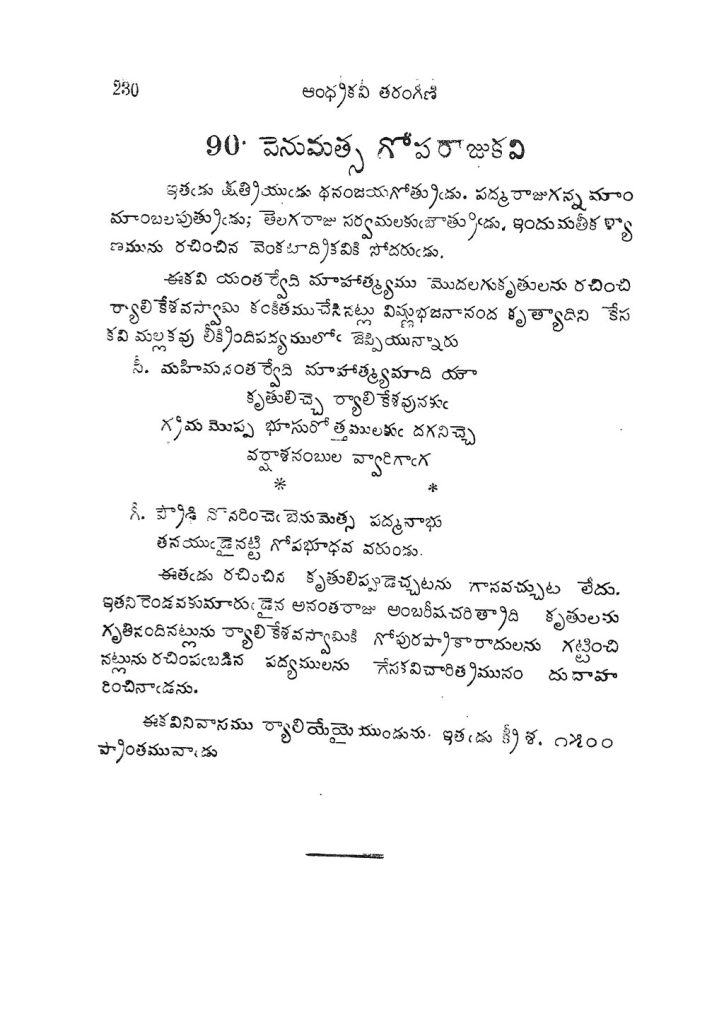 230
ఆంధ్రకవి తరంగిణి
90. పెనుమత్స గోపరాజుకవి
ఇతఁడు క్షత్రియుఁడు ధనంజయగోత్రుఁడు. పద్మరాజుగన్న మాం
మాంబలపుత్రుఁడు; తెలగరాజు సర్వమలకుఁబౌత్రుఁడు. ఇందుమతీక ళ్యా
ణమును రచించిన వెంకటాద్రికవికి సోదరుఁడు.
ఈకవి యంతర్వేది మాహాత్మ్యము మొదలగుకృతులను రచించి
ర్యాలి కేశవస్వామి కంకితముచేసినట్లు విష్ణుభజనానంద కృత్యాదిని కేస
కవి మల్లకవు లీక్రిందిపద్యములోఁ జెప్పియున్నారు
సీ. మహిమనంతర్వేది మాహాత్మ్యమాది యా
కృతులిచ్చె ర్యాలి కేశవునకుఁ
గ్రమ మొప్ప భూసురోత్తములకుఁ దగనిచ్చె
వర్షాశనంబుల వ్వారిగాఁగ
* *
గీ. ప్రౌఢి నొనరించెఁ బెనుమెత్స పద్మనాభు
తనయుఁడైనట్టి గోపభూధవ వరుండు.
ఈతఁడు రచించిన కృతులిప్పుడెచ్చటను గానవచ్చుట లేదు.
ఇతనిరెండవకుమారుఁడైన అనంతరాజు అంబరీషచరిత్రాది కృతులను
గృతినందినట్లును ర్యాలి కేశవస్వామికి గోపురప్రాకారాదులను గట్టించి
నట్లును రచింపఁబడిన పద్యములను గేసకవిచారిత్రమునం దుదాహ
రించినాఁడను.
ఈకవినివాసము ర్యాలియేయై యుండును. ఇతఁడు క్రీ శ. ౧౫౦౦
ప్రాంతమువాఁడు